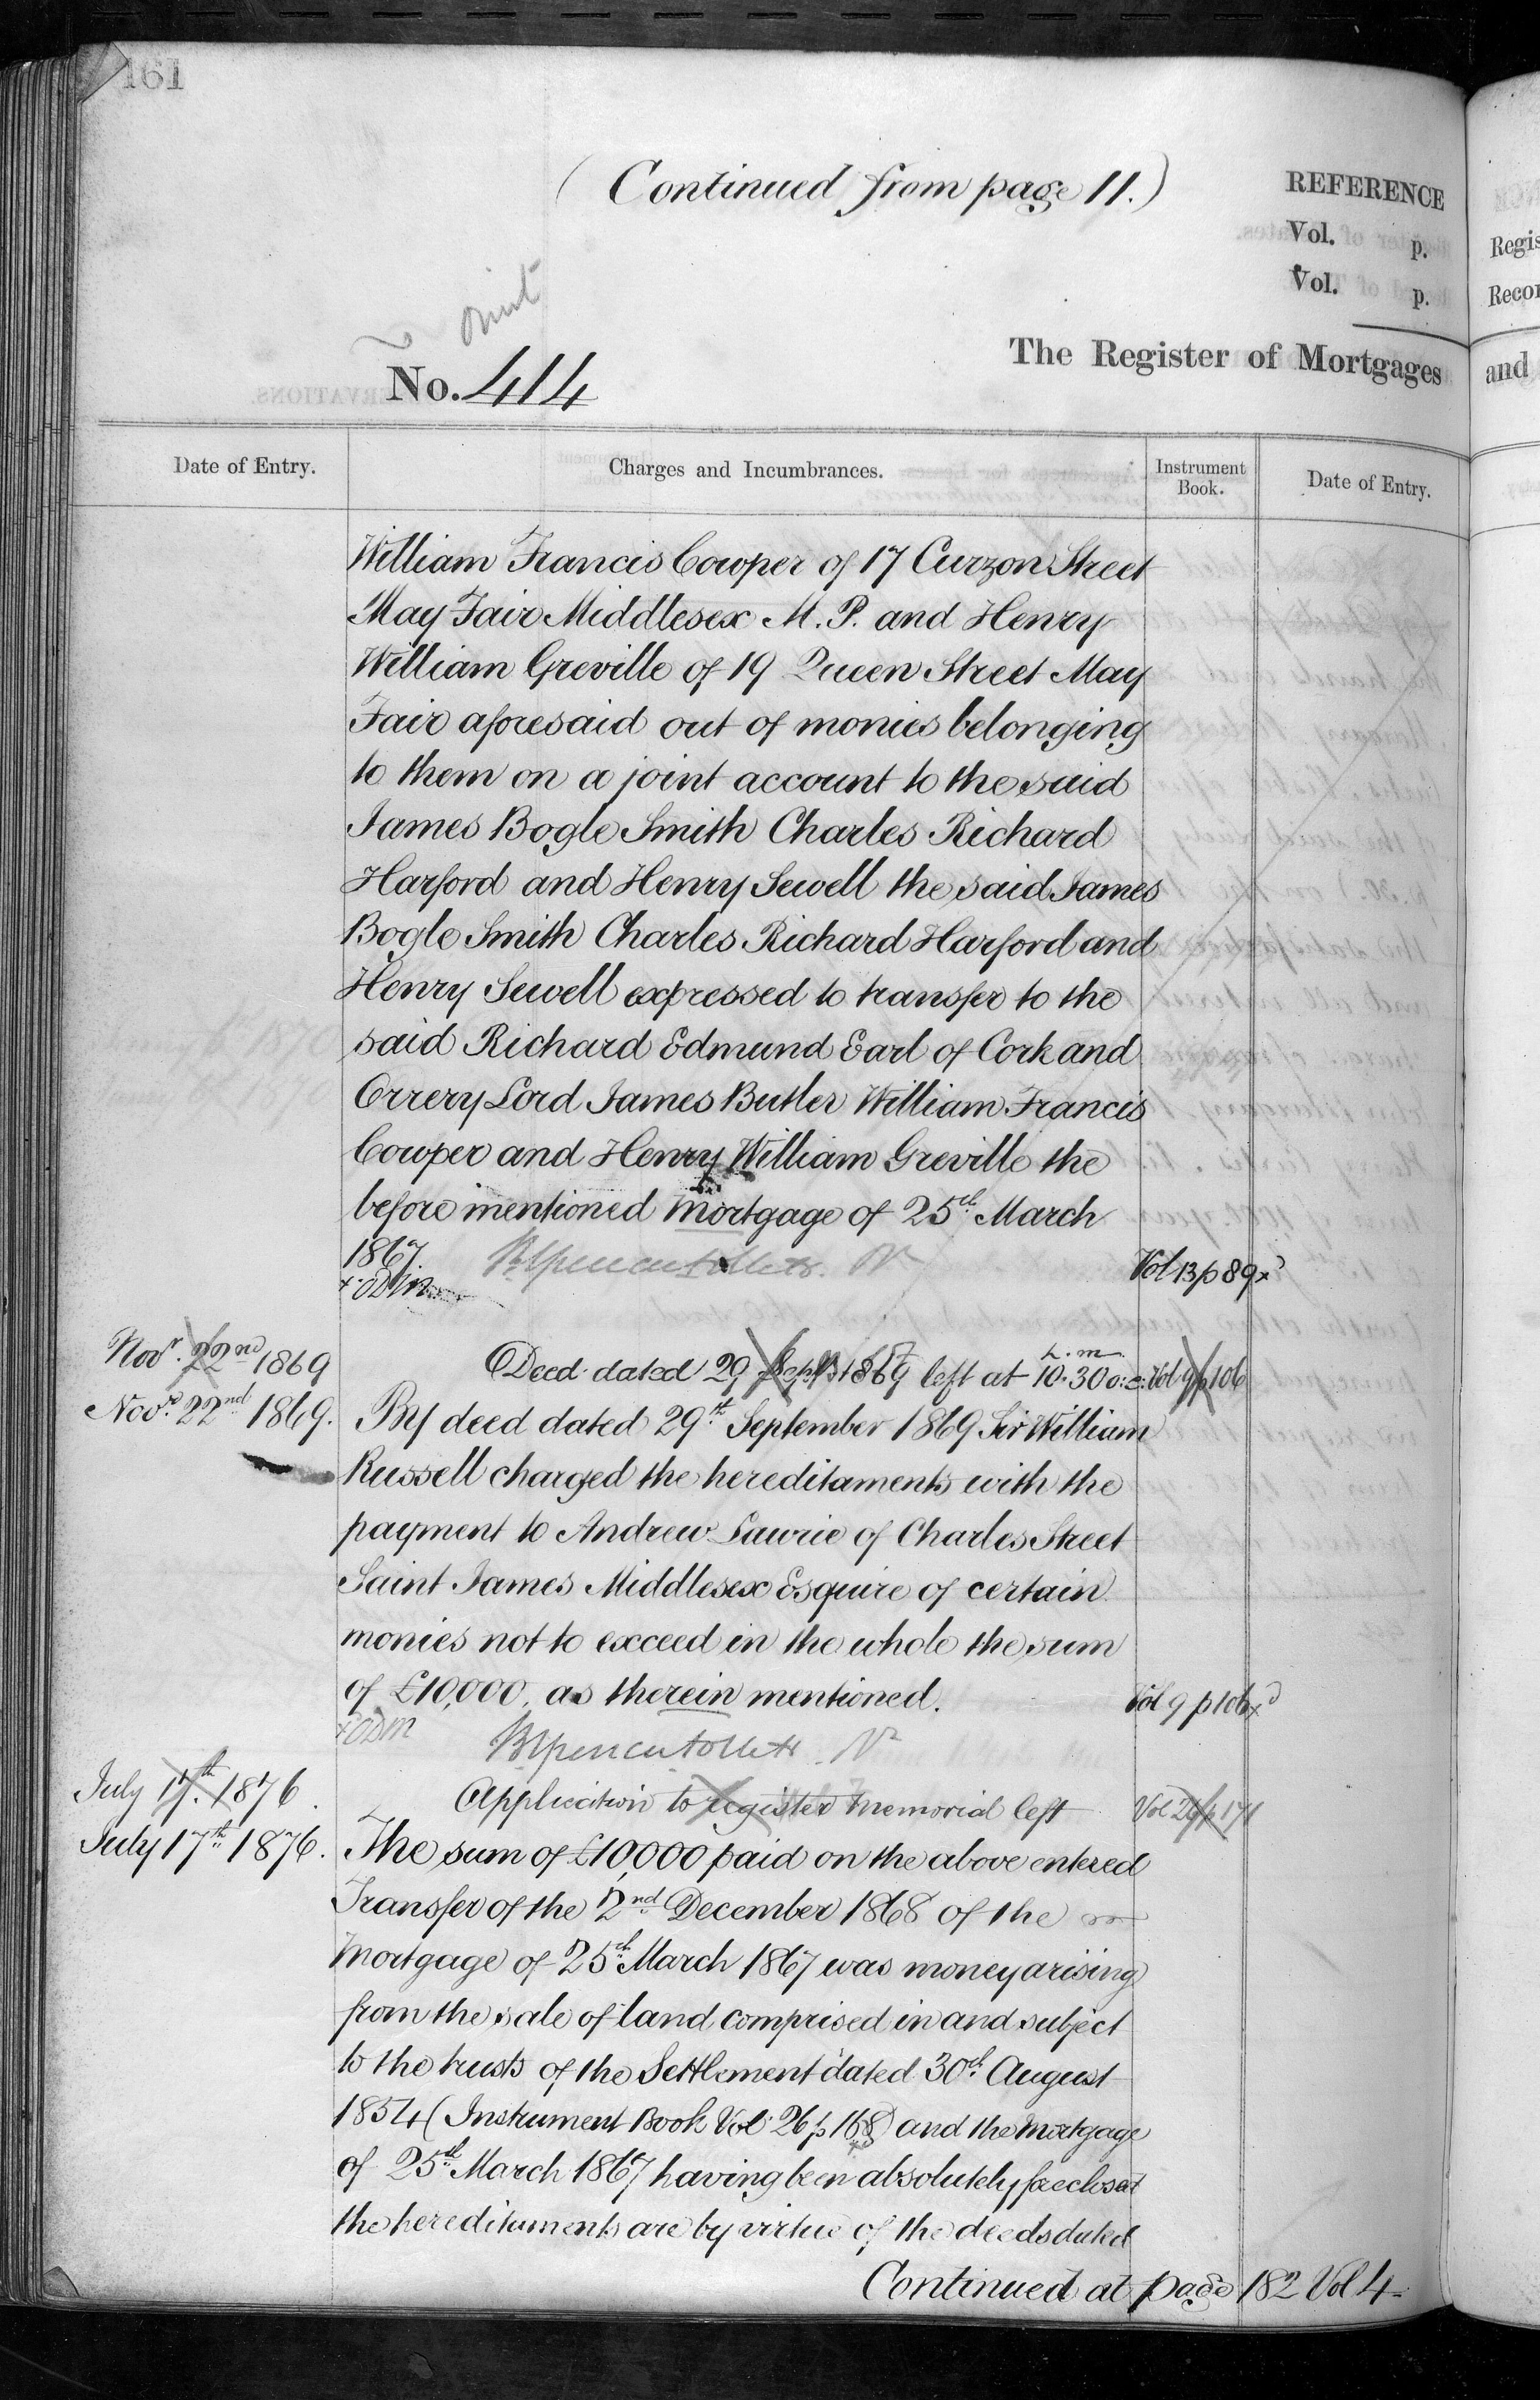 161
(Continued from page 11.)
REFERENCE
Vol. p.
Vol. p.
No. 414
The Register of Mortgages
Date of Entry.
Charges and Incumbrances.
Instrument Book.
Date of Entry.
William Francis Cowper of 17 Curzon Street
May Fair Middlesex M. P. and Henry
William Greville of 19 Queen Street May
Fair aforesaid out of monies belonging
to them on a joint account to the said
James Bogle Smith Charles Richard
Harford and Henry Sewell the said James
Bogle Smith Charles Richard Harford and
Henry Sewell expressed to transfer to the
said Richard Edmund Earl of Cork and
Orrery Lord James Butler William Francis
Cowper and Henry William Greville the
before mentioned Mortgage of 25th March
1867
Vol 13 p 89 xd
Novr. 22nd 1869
Deed dated 29 Sept 1869 left at 10.30 h. m. Vol 9 p 106
Novr. 22nd 1869.
By deed dated 29th September 1869 Sir William
Russell charged the hereditaments with the
payment to Andrew Lawrie of Charles Street
Saint James Middlesex Esquire of certain
monies not to exceed in the whole the sum
of £10,000, as therein mentioned.
Vol 9 p 106 xd
July 17th. 1876.
Application to register Memorial left Vol 26 p 171
July 17th 1876.
The sum of £10,000 paid on the above entered
Transfer of the 2nd December 1868 of the
Mortgage of 25th March 1867 was money arising
from the sale of land comprised in and subject
to the trusts of the Settlement dated 30th August
1854 (Instrument Book Vol 26 p 168) and the Mortgage
of 25th March 1867 having been absolutely foreclosed
the hereditaments are by virtue of the deeds dated
Continued at page 182 Vol 4
Regis
Recor
and